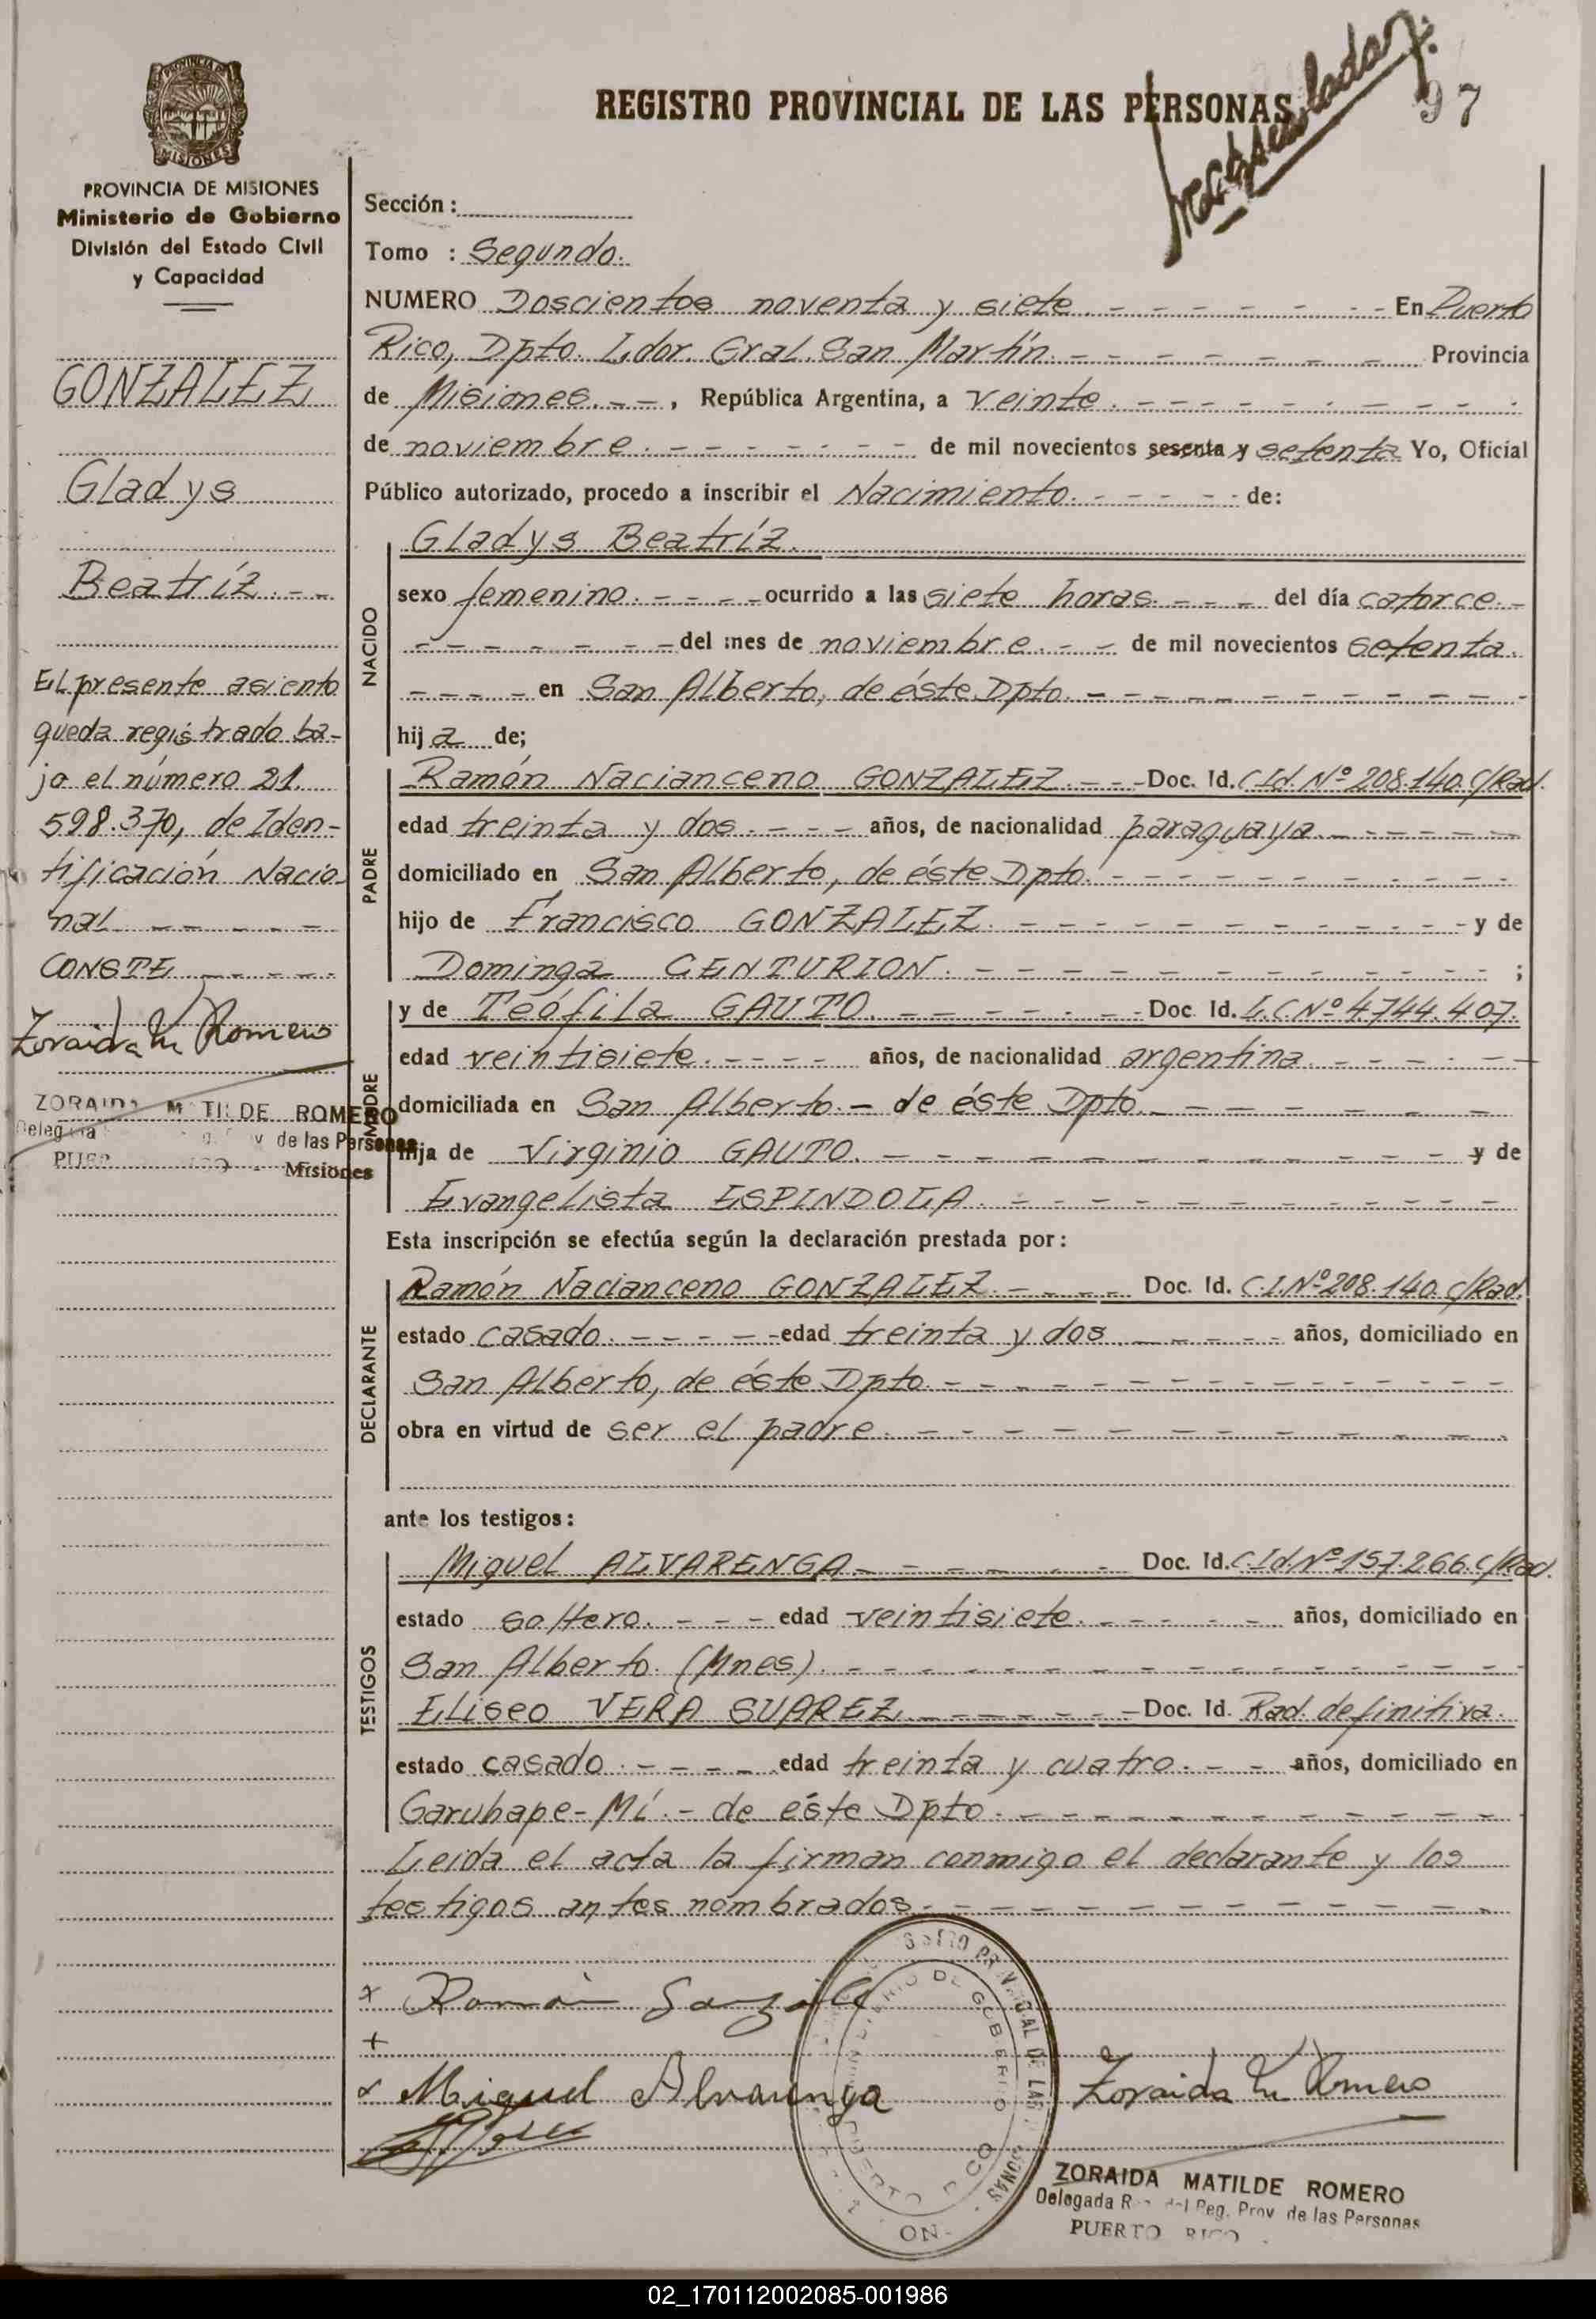 REGISTRO PROVINCIAL DE LAS PERSONAS
97
PROVINCIA DE MISIONES
Ministerio de Gobierno
División del Estado Civil
y Capacidad
GONZALEZ
Gladys
Beatríz. - -
El presente asiento
queda registrado ba-
jo el número 21.
598.370, de Iden-
tificación Nacio-
nal - - - - -
CONSTE - - - -
Zoraida M Romero
ZORAIDA MATILDE ROMERO
de las Personas
Misiones
Sección :
Tomo : Segundo.
NUMERO Doscientos noventa y siete. - - - - - - - En Puerto
Rico, Dpto. Ldor. Gral. San Martín. - - - - - - - - Provincia
de Misiones. - - , República Argentina, a veinte. - - - - - - - - - -
de noviembre. - - - - - - - de mil novecientos sesenta y setenta Yo, Oficial
Público autorizado, procedo a inscribir el Nacimiento. - - - - - de:
NACIDO
Gladys Beatríz.
sexo femenino. - - - - ocurrido a las siete horas. - - - del día catorce. -
- - - - - - - del mes de noviembre. - - de mil novecientos setenta.
- - - - en San Alberto, de éste Dpto. - - - - - - - - - - - -
hija de;
PADRE
Ramón Nacianceno GONZALEZ. - - - Doc. Id. C.Id. Nº 208.140. c/Rad.
edad treinta y dos. - - - - años, de nacionalidad paraguaya. - - - - - -
domiciliado en San Alberto, de éste Dpto. - - - - - - - - - -
hijo de Francisco GONZALEZ. - - - - - - - - - - - - y de
Dominga CENTURION. - - - - - - - - - - - - - ;
MADRE
y de Teófila GAUTO. - - - - - - - Doc. Id. L.C.Nº 4744.407.
edad veintisiete. - - - - - años, de nacionalidad argentina. - - - - - -
domiciliada en San Alberto. - de éste Dpto. - - - - - - -
hija de Virginio GAUTO. - - - - - - - - - - - - y de
Evangelista ESPINDOLA. - - - - - - - - - - - -
Esta inscripción se efectúa según la declaración prestada por:
DECLARANTE
Ramón Nacianceno GONZALEZ. - - - - Doc. Id. C.I.Nº208.140. c/Rad.
estado casado. - - - - - edad treinta y dos. - - - - - años, domiciliado en
San Alberto, de éste Dpto. - - - - - - - - - - - - - -
obra en virtud de ser el padre. - - - - - - - - - - - -
ante los testigos:
TESTIGOS
Miguel ALVARENGA - - - - - - Doc. Id. C.Id.Nº157.266.c/Rad.
estado soltero. - - - - edad veintisiete. - - - - - años, domiciliado en
San Alberto. (Mnes). - - - - - - - - - - - - - - - -
Eliseo VERA SUAREZ. - - - - - - Doc. Id. Rad. definitiva.
estado casado. - - - - edad treinta y cuatro. - - años, domiciliado en
Garuhape-Mí. - de éste Dpto. - - - - - - - - - - - -
Leida el acta la firman conmigo el declarante y los
testigos antes nombrados. - - - - - - - - - - -
x Ramón Gonzále
+
x Miguel Alvarenga
Zoraida M Romero
ZORAIDA MATILDE ROMERO
Delegada Reg. Prov. de las Personas
PUERTO RICO
02_170112002085-001986